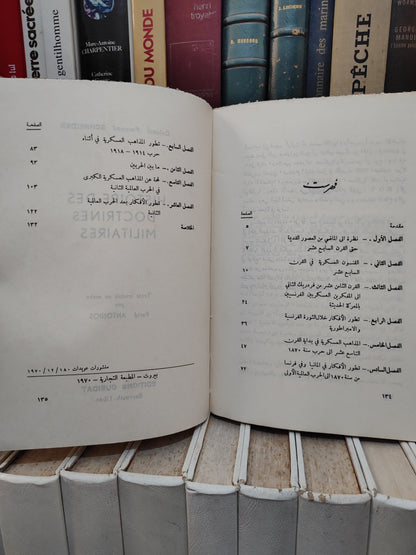 terre sacrée
gentilhomme
Marc-Antoine
CHARPENTIER
Catherine
DU MONDE
henri
troyat
PÊCHE
فهرست
الصفحة
مقدمة ٥
الفصل الأول – نظرة الى الماضي من العصور القديمة
حتى القرن السابع عشر ٧
الفصل الثاني – الفنسون العسكرية في القرن
السابع عشر ١٠
الفصل الثالث – القرن الثامن عشر من فردريك الثاني
الى المفكرين العسكريين الفرنسيين
للمعركة الحديثة ٢٤
الفصل الرابع – تطور الأفكار خلال الثورة الفرنسية
والامبراطورية ٣٦
الفصل الخامس – المذاهب العسكرية في بداية القرن
التاسع عشر الى حرب سنة ١٨٧٠ ٤٧
الفصل السادس – تطور الأفكار في المانيا وفي فرنسا
من سنة ١٨٧٠ الى الحرب العالمية الأولى ٧٢
١٣٤
الصفحة
الفصل السابع – تطور المذاهب العسكرية في أثناء
حرب ١٩١٤ – ١٩١٨ ٨٣
الفصل الثامن – ما بين الحربين ٩٣
الفصل التاسع – لمحة عن المذاهب العسكرية الكبرى
في الحرب العالمية الثانية ١٠٣
الفصل العاشر – تطور الأفكار بعد الحرب العالمية
الثانية ١٢٢
الخلاصة ١٣٢
منشورات عويدات ١٨٠ / ١٢ / ١٩٧٠
بيروت – المطبعة التجارية – ١٩٧٠
١٣٥